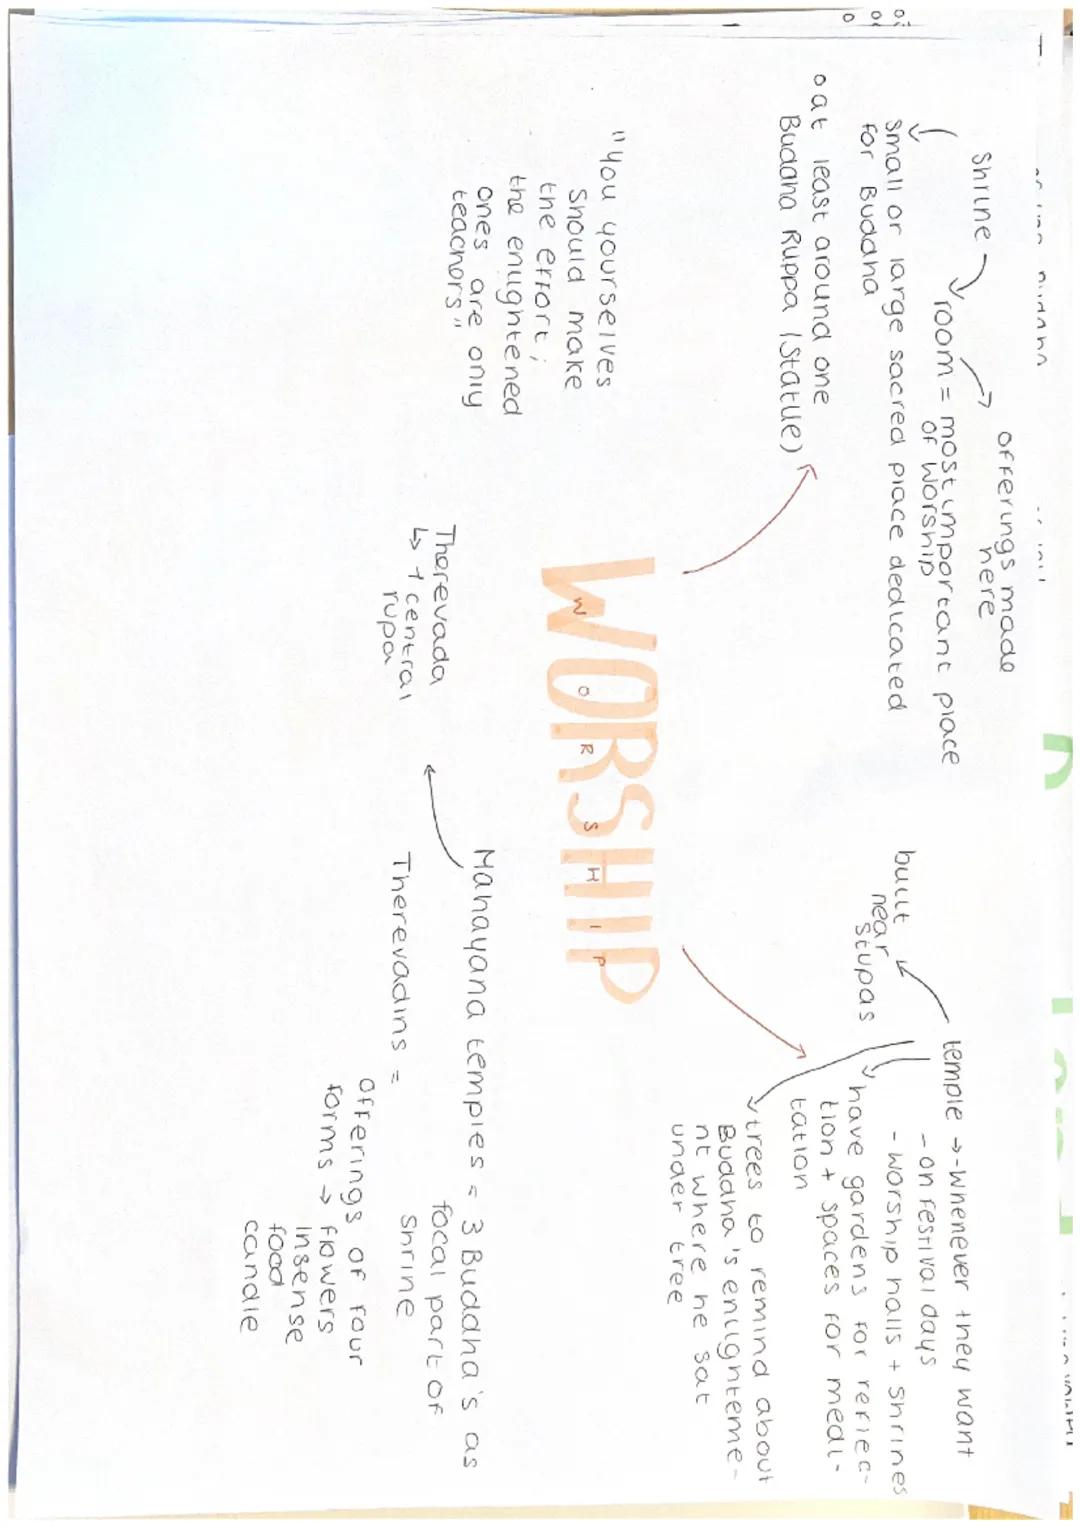 Shrine
offerings made
here
room = most important place
of worship
small or large sacred place dedicated
for Buddha
at least around one
Buddha Ruppa (Statue)
"You yourselves
should make
the effort;
the enlightened
ones are only
teachers"
WORSHIP
WORSHIP
temple → - whenever they want
- on festival days
- worship halls + shrines
built
near
stupas
have gardens for reflec-
tion + spaces for medi-
tation
trees to remind about
Buddha's enlighteme-
nt where he sat
under tree
Mahayana temples = 3 Buddha's as
focal part of
shrine
Therevada
↳ 1 central
rupa
Therevadins =
offerings of four
forms → flowers
insense
food
candle